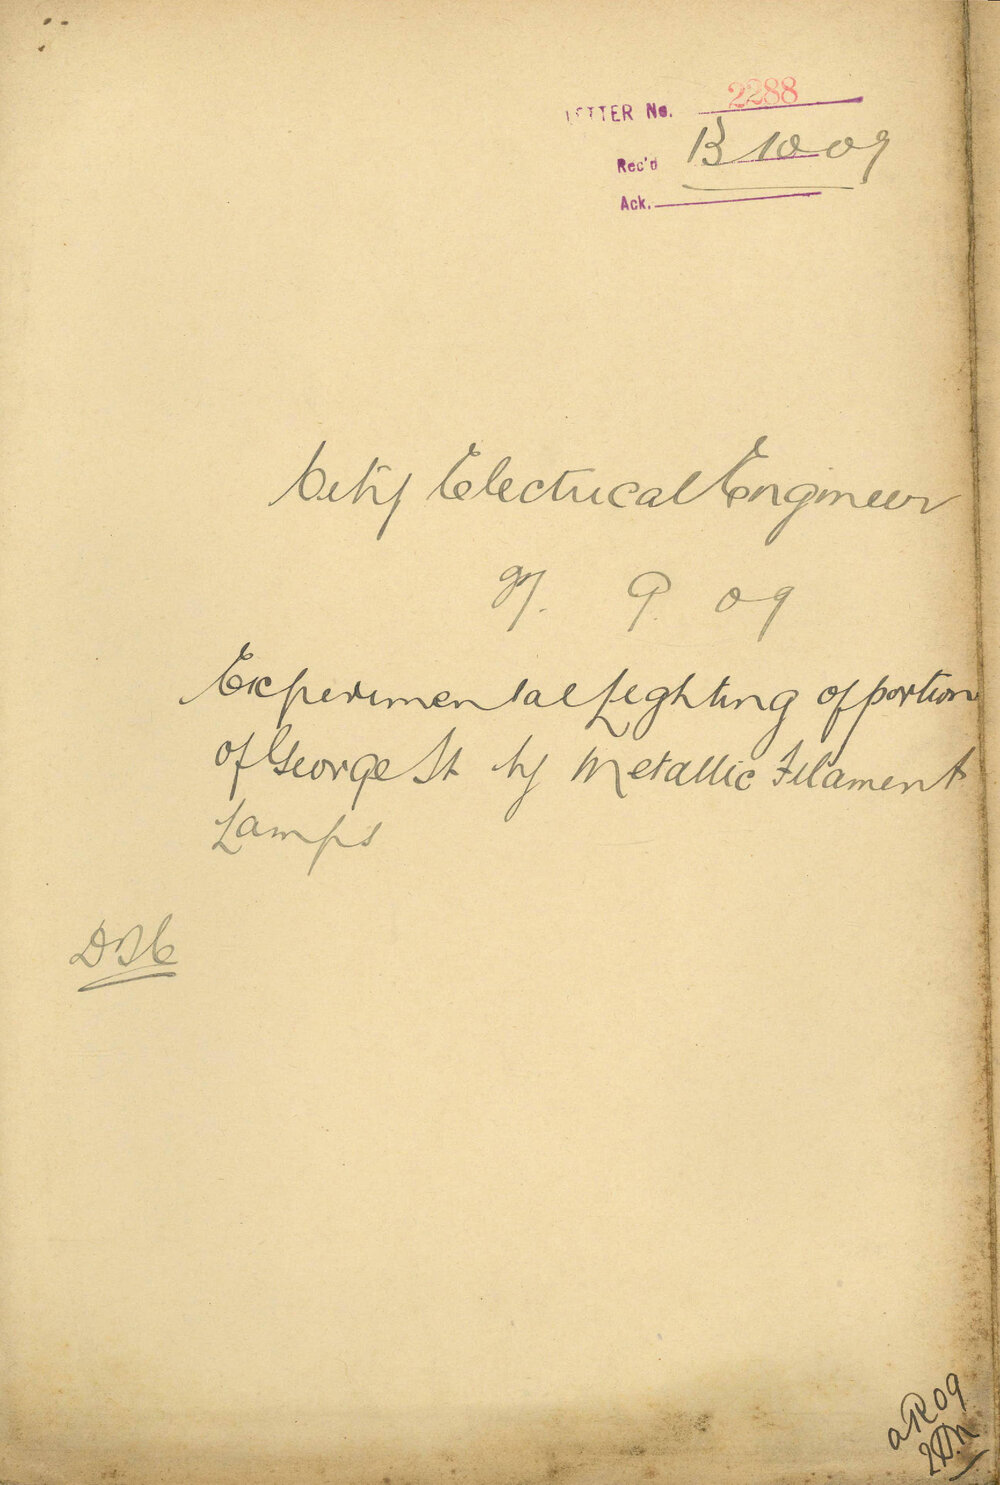 LETTER No. 2288
Rec'd 13 10 09
Ack.
City Electrical Engineer
9. 09
Experimental Lighting of portion
of George St by Metallic Filament
Lamps